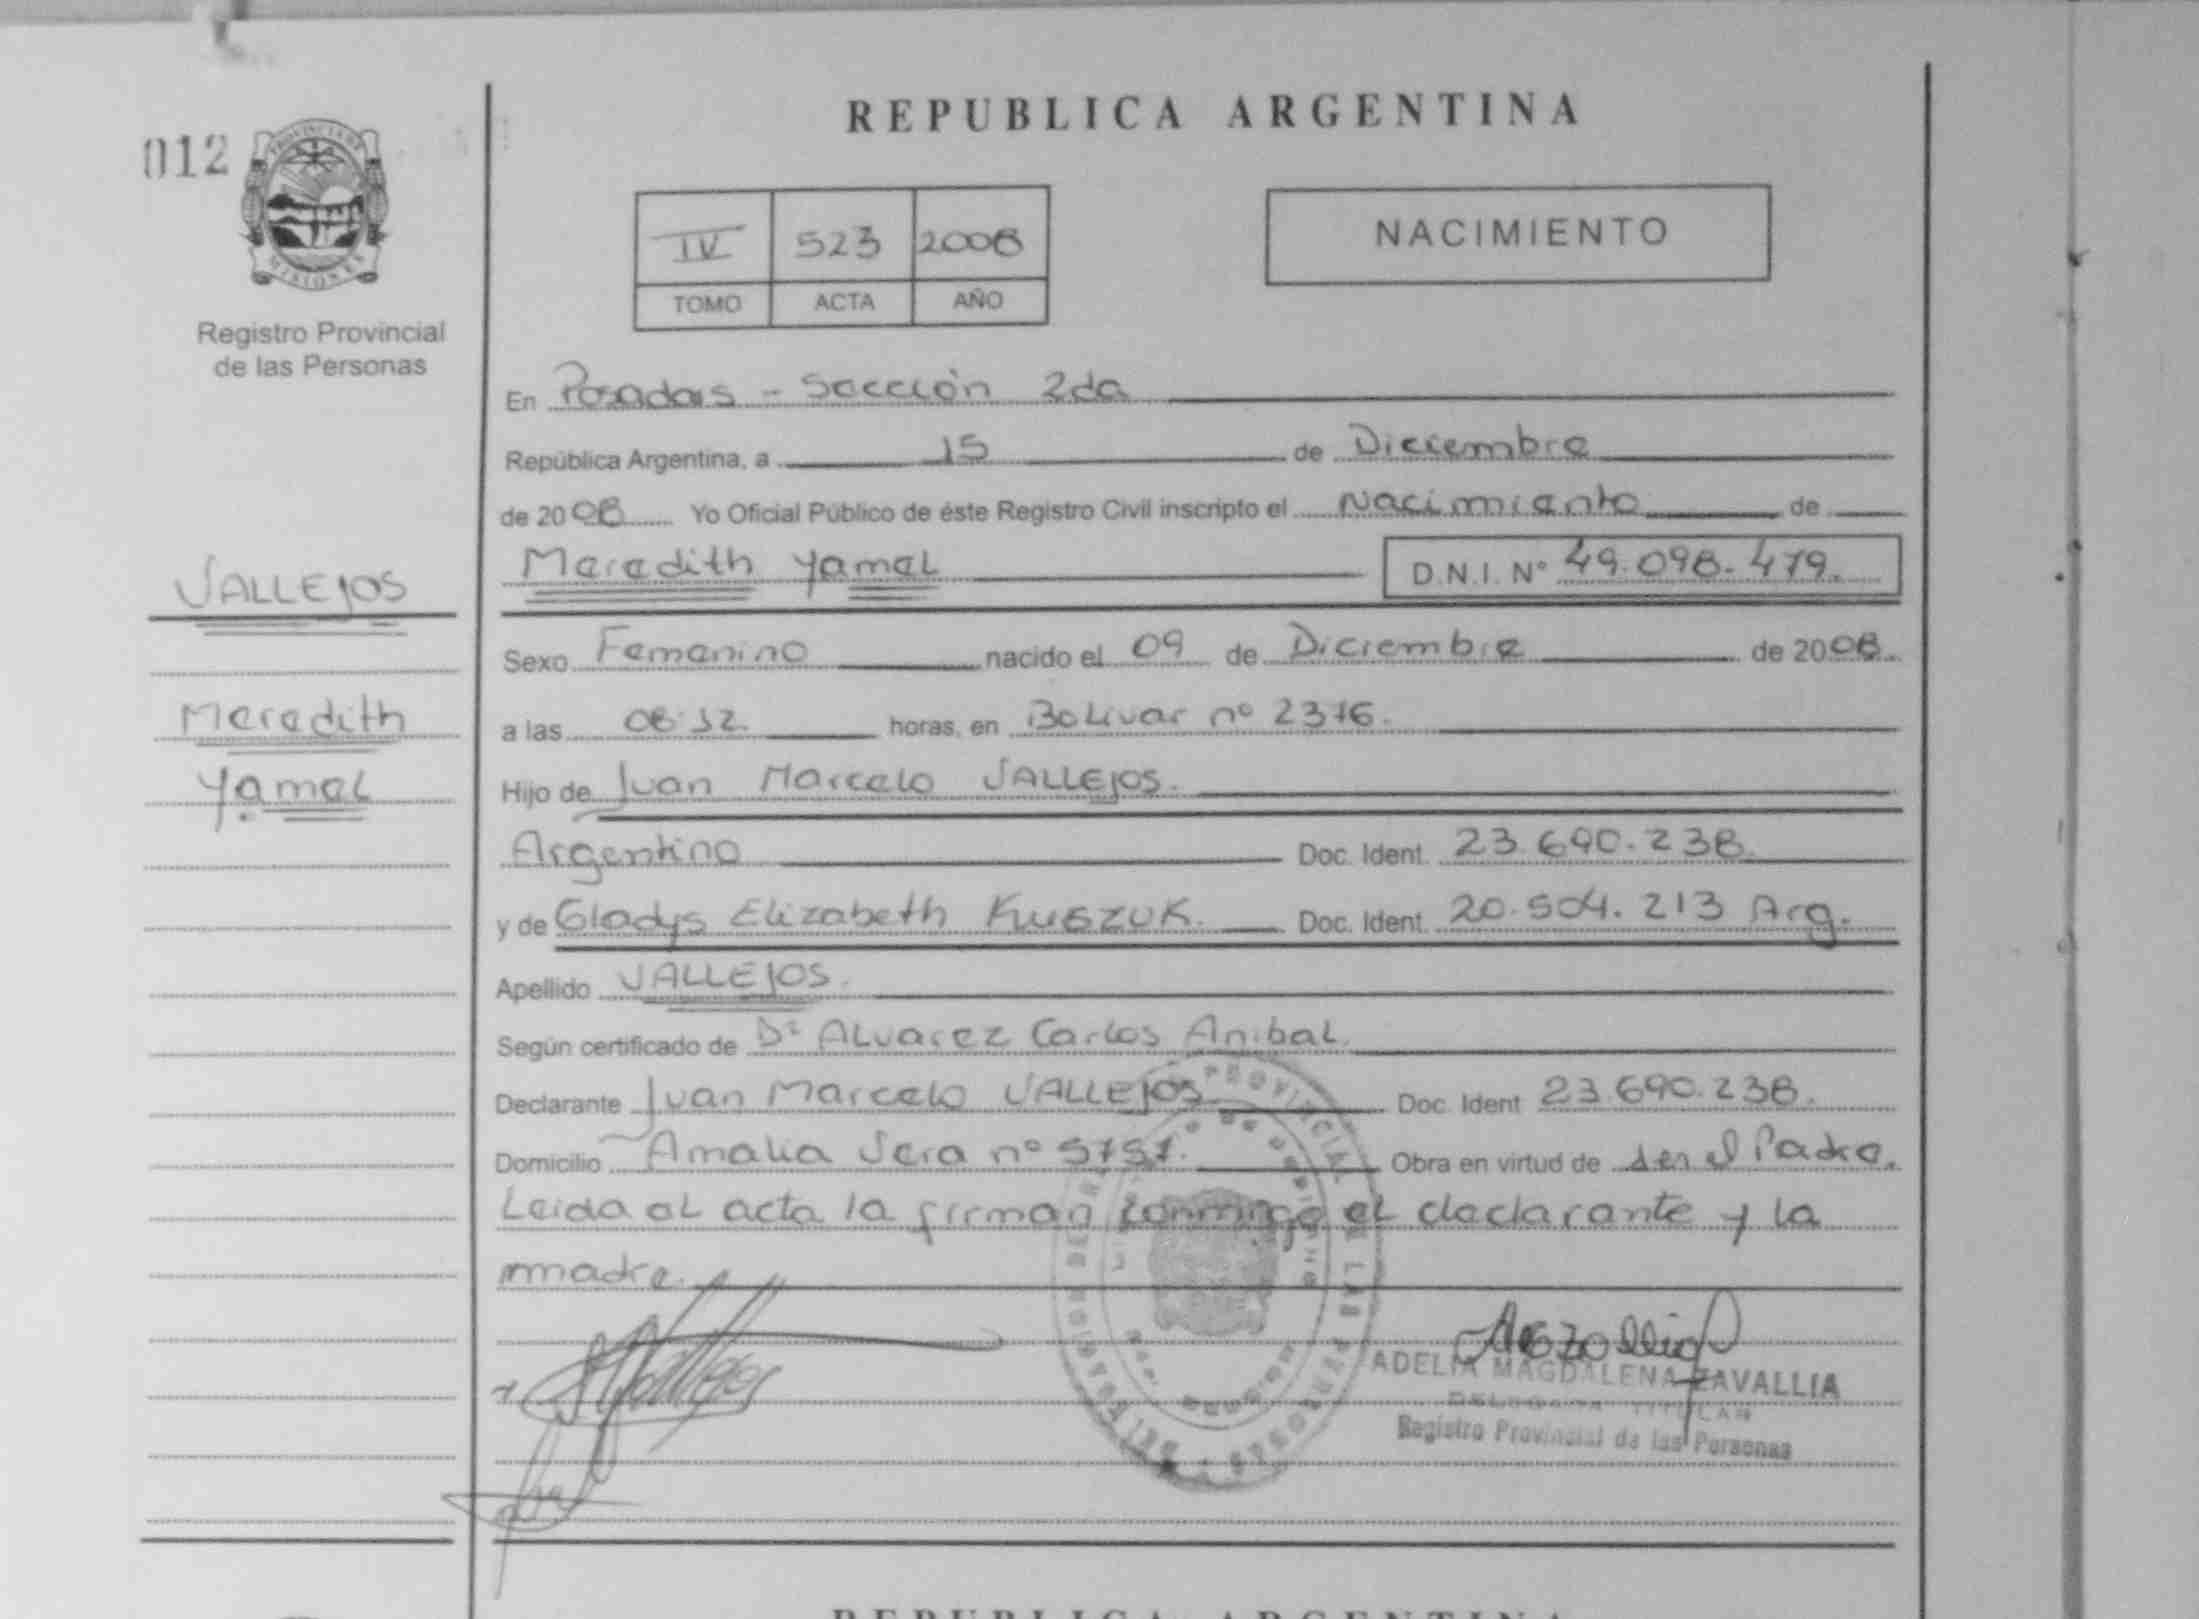 012
PROVINCIA DE
MISIONES
Registro Provincial
de las Personas
VALLEJOS
Meredith
Yamel
REPUBLICA ARGENTINA
IV 523 2008
TOMO ACTA AÑO
NACIMIENTO
En Posadas - Sección 2da
República Argentina, a 15 de Diciembre
de 2008 Yo Oficial Público de éste Registro Civil inscripto el Nacimiento de
Meredith Yamel D.N.I. Nº 49.098.479.
Sexo Femenino nacido el 09 de Diciembre de 2008.
a las 08:12. horas, en Bolivar nº 2376.
Hijo de Juan Marcelo VALLEJOS.
Argentino Doc. Ident. 23.690.238.
y de Gladys Elizabeth Doc. Ident. 20.504.213 Arg.
Apellido VALLEJOS.
Según certificado de Dr ALvarez Carlos Anibal.
Declarante Juan Marcelo VALLEJOS. Doc. Ident 23.690.238.
Domicilio Amalia Vera nº 5757. Obra en virtud de ser el Padre.
Leida el acta la firman conmigo el declarante y la
madre.
ADELIA MAGDALENA ZAVALLIA
DELEGADA TITULAR
Registro Provincial de las Personas
REPUBLICA ARGENTINA